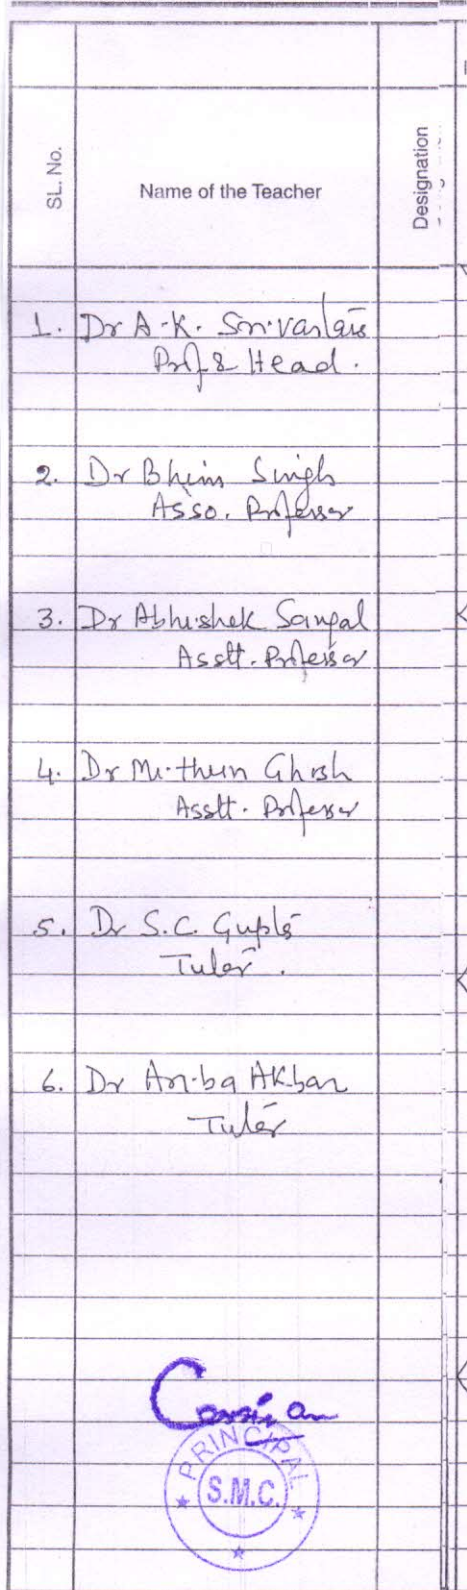 SL. No.
Name of the Teacher
Designation
1. Dr A.K. Srivastava
Prof & Head.
2. Dr Bhim Singh
Asso. Professor
3. Dr Abhishek Sangal
Asstt. Professor
4. Dr Mithun Ghosh
Asstt. Professor
5. Dr S.C. Gupta
Tutor.
6. Dr Ariba Akbar
Tutor
PRINCIPAL
S.M.C.